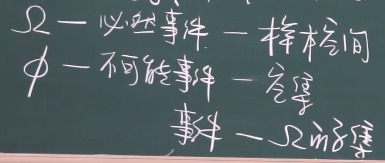 Ω — 必然事件 — 样本空间
φ — 不可能事件 — 空集
事件 — Ω的子集